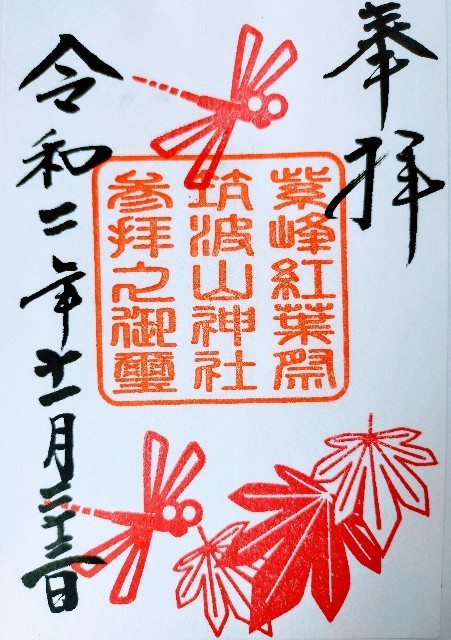 奉拝
紫峰紅葉祭
筑波山神社
参拝之御璽
令和二年十一月二十三日